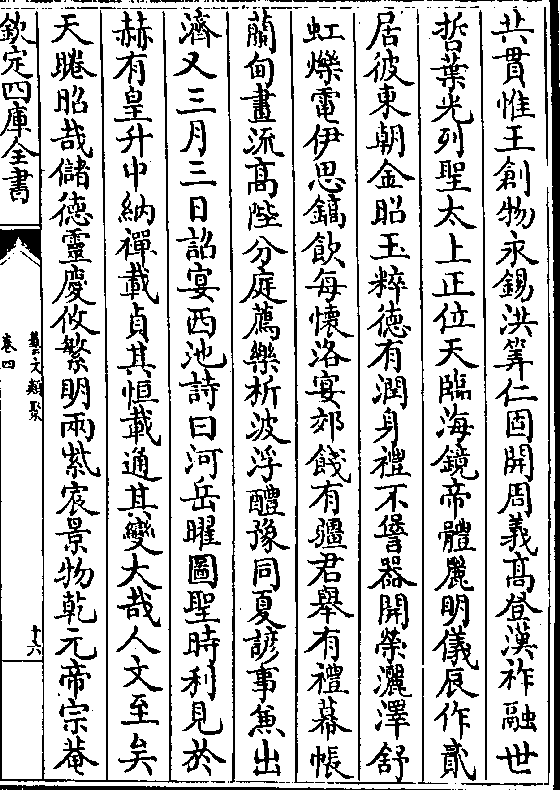 共貫惟王創物永錫洪筭仁固開周義髙登漢祚融世
哲葉光列聖太上正位天臨海鏡帝體麗明儀辰作貳
居彼東朝金昭玉粹徳有潤身禮不愆器開榮灑澤舒
虹爍電伊思鎬飲每懐洛宴郊餞有疆君舉有禮幕帳
蘭甸畫流髙陛分庭薦樂析波浮醴豫同夏諺事兼出
濟又三月三日詔宴西池詩曰河岳曜圖聖時利見於
赫有皇升中納禪載貞其恒載通其變大哉人文至矣
天睠昭哉儲徳靈慶攸繁明兩紫宸景物乾元帝宗菴
欽定四庫全書
藝文類聚
卷四
十六